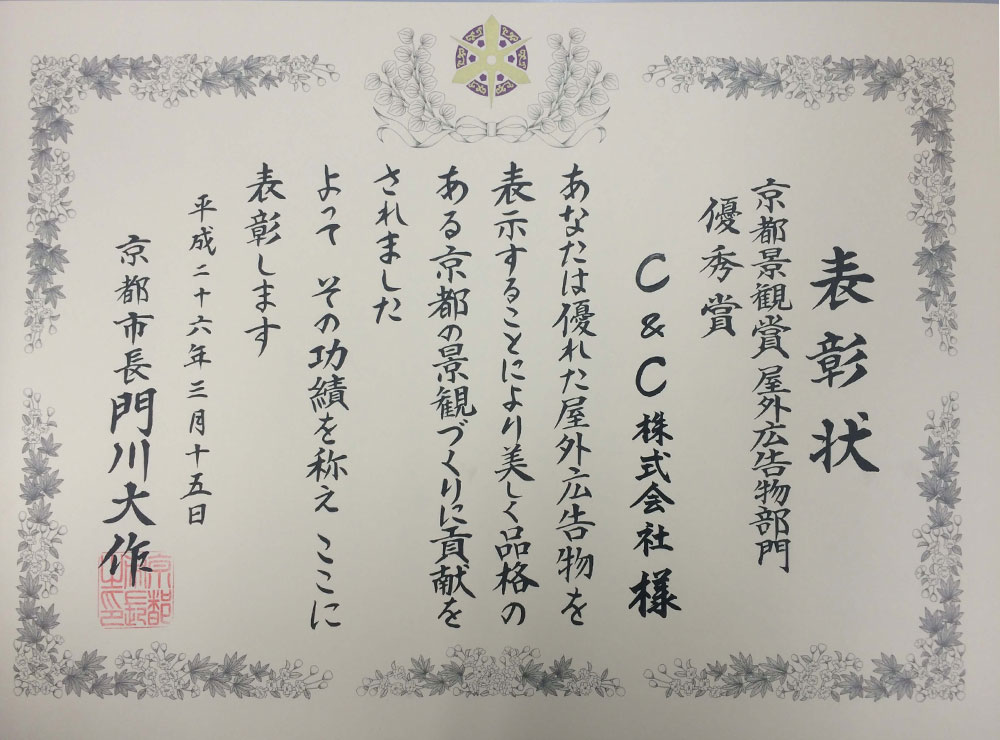 表彰状
京都景観賞 屋外広告物部門
優秀賞
C&C株式会社 様
あなたは優れた屋外広告物を
表示することにより美しく品格の
ある京都の景観づくりに貢献を
されました
よって その功績を称え ここに
表彰します
平成二十六年三月十五日
京都市長 門川大作
京都市長之印